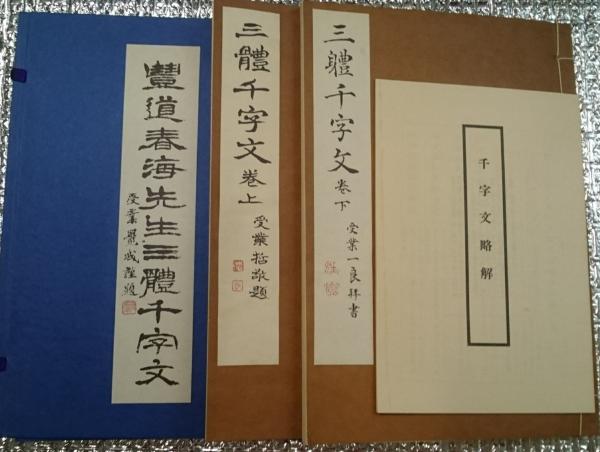 豐道春海先生三體千字文
受業覺成謹題
三體千字文
卷上
受業哲敬題
三體千字文
卷下
受業一良拜書
千字文略解